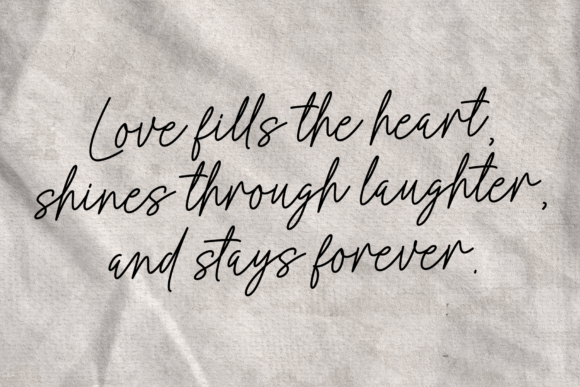 Love fills the heart,
shines through laughter,
and stays forever.